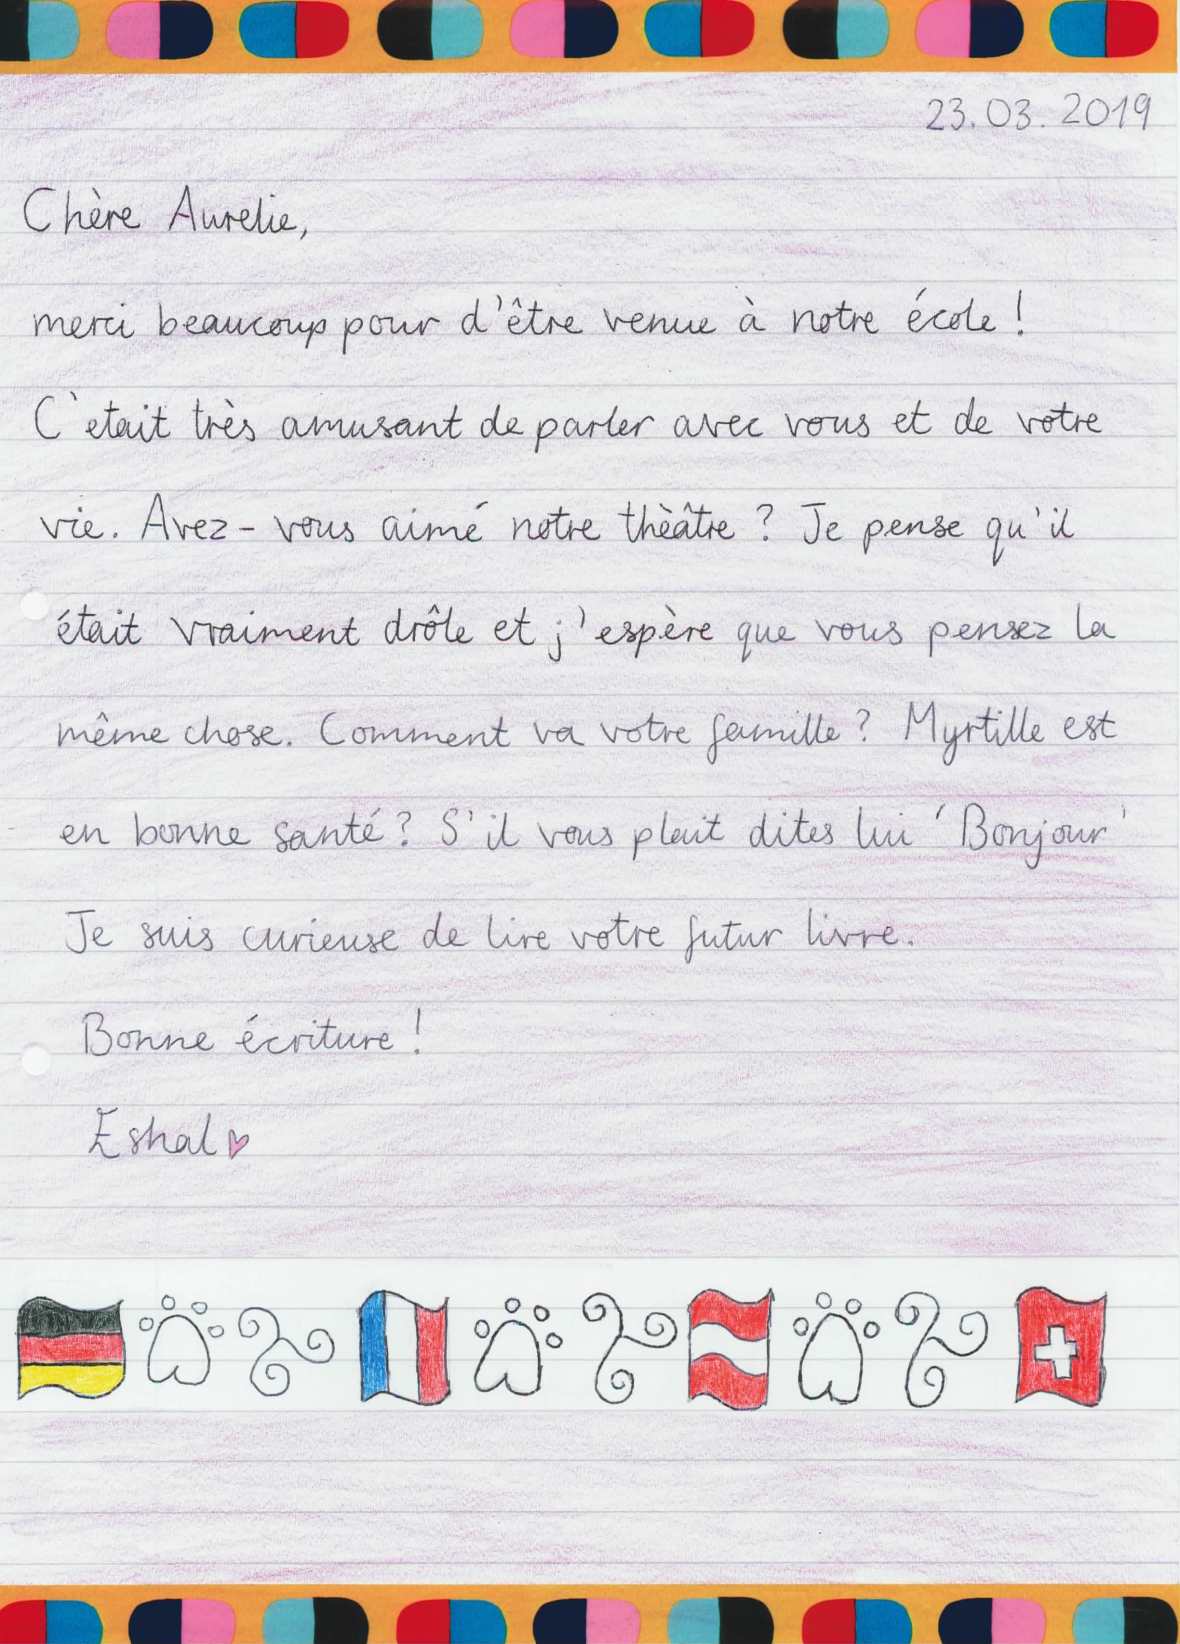 23.03.2019
Chère Aurelie,
merci beaucoup pour d'être venue à notre école !
C`etait très amusant de parler avec vous et de votre
vie. Avez-vous aimé notre thèâtre ? Je pense qu'il
était vraiment drôle et j'espère que vous pensez la
même chose. Comment va votre famille ? Myrtille est
en bonne santé ? S'il vous plait dites lui 'Bonjour'
Je suis curieuse de lire votre futur livre.
Bonne écriture !
Eshal